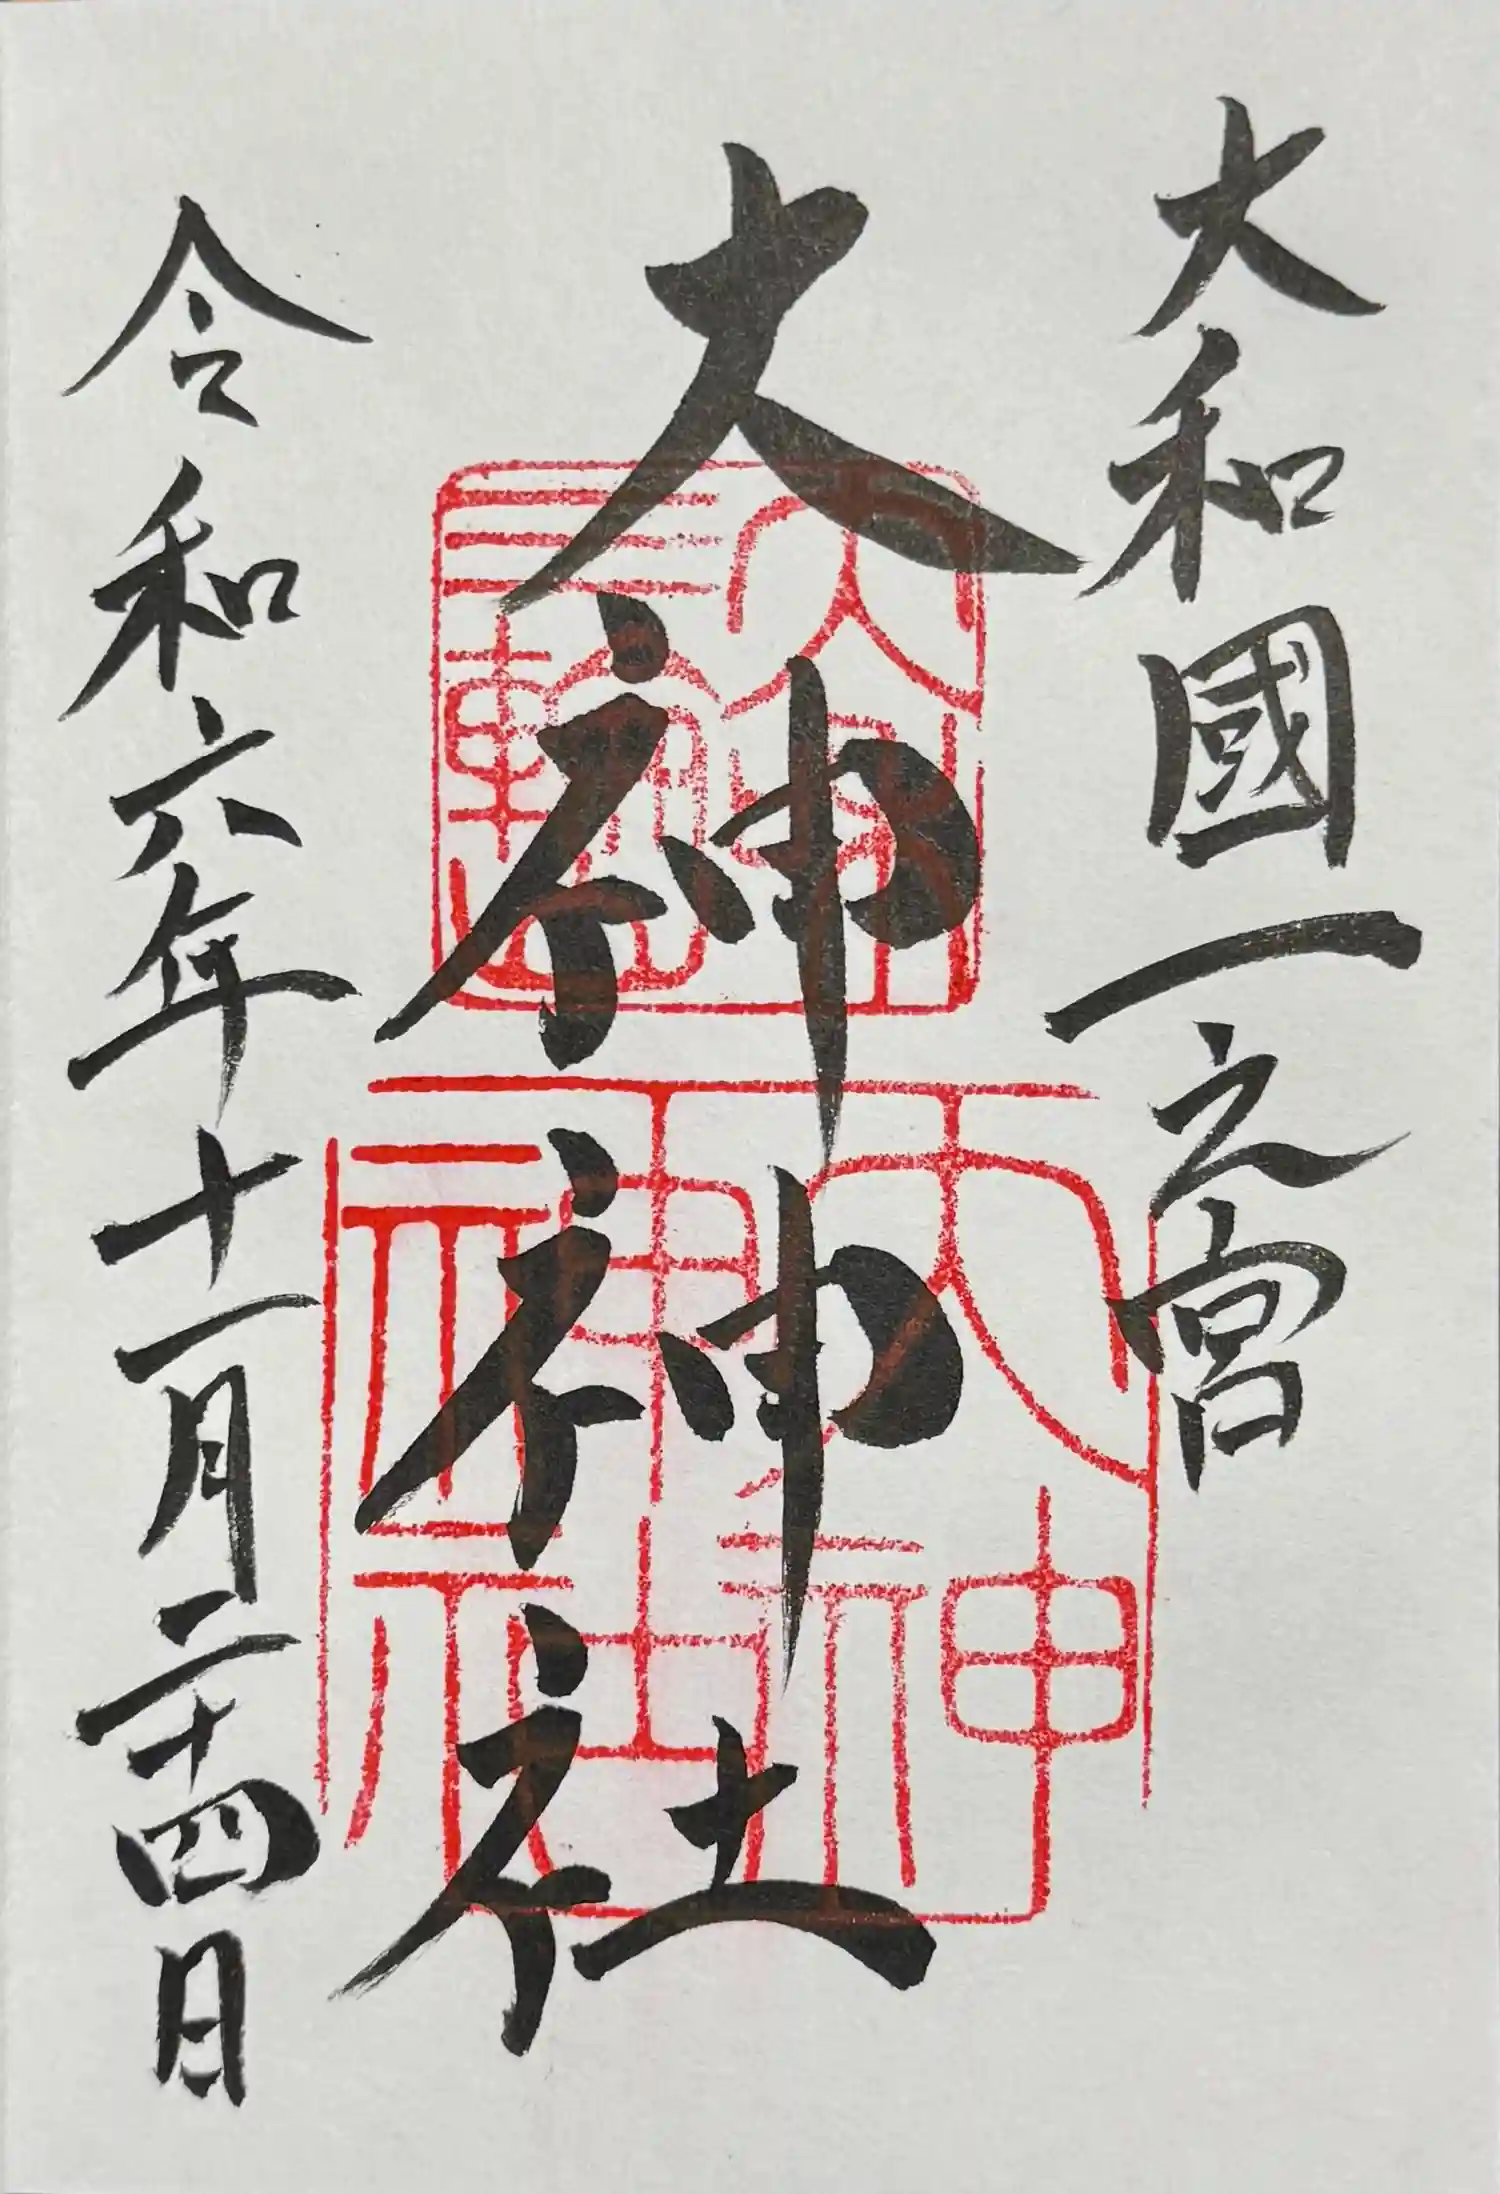 大和國一之宮
大神神社
令和六年十一月二十四日